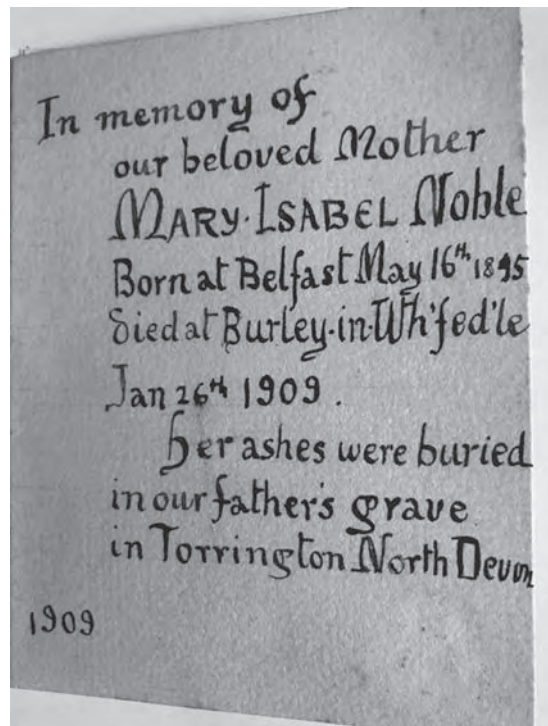 In memory of
our beloved Mother
MARY·ISABEL Noble
Born at Belfast May 16th
Died at Burley·in·Wh'fed'le
Jan 26th 1909.
Her ashes were buried
in our father's grave
in Torrington North Devon
1909